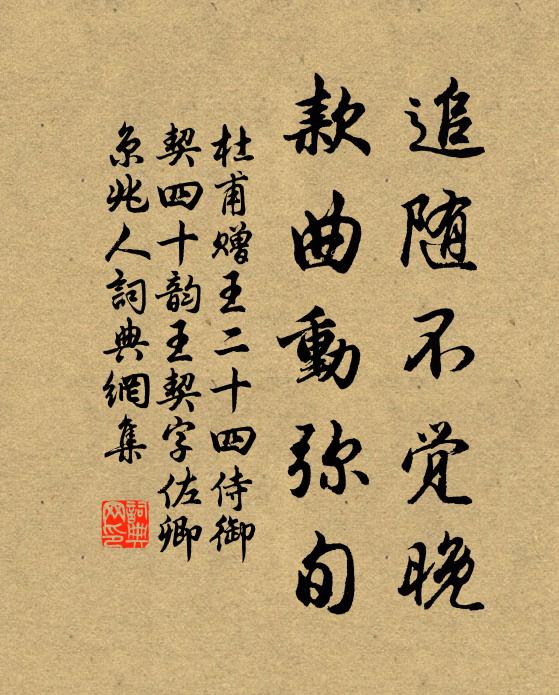 追随不觉晚
款曲動弥旬
杜甫赠王二十四侍御
契四十韵王契字佐卿
京兆人詞典網集
詞典
网印